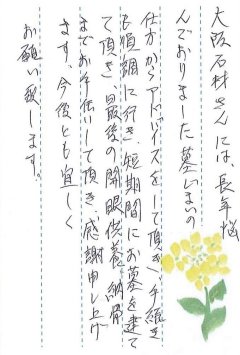 大阪石材さんには、長年悩
んでおりました墓じまいの
仕方からアドバイスをして頂き、手続き
も順調に行き、短期間にお墓を建て
て頂き、最後の開眼供養、納骨
までお手伝いして頂き、感謝申し上げ
ます。今後とも宜しく
お願い致します。